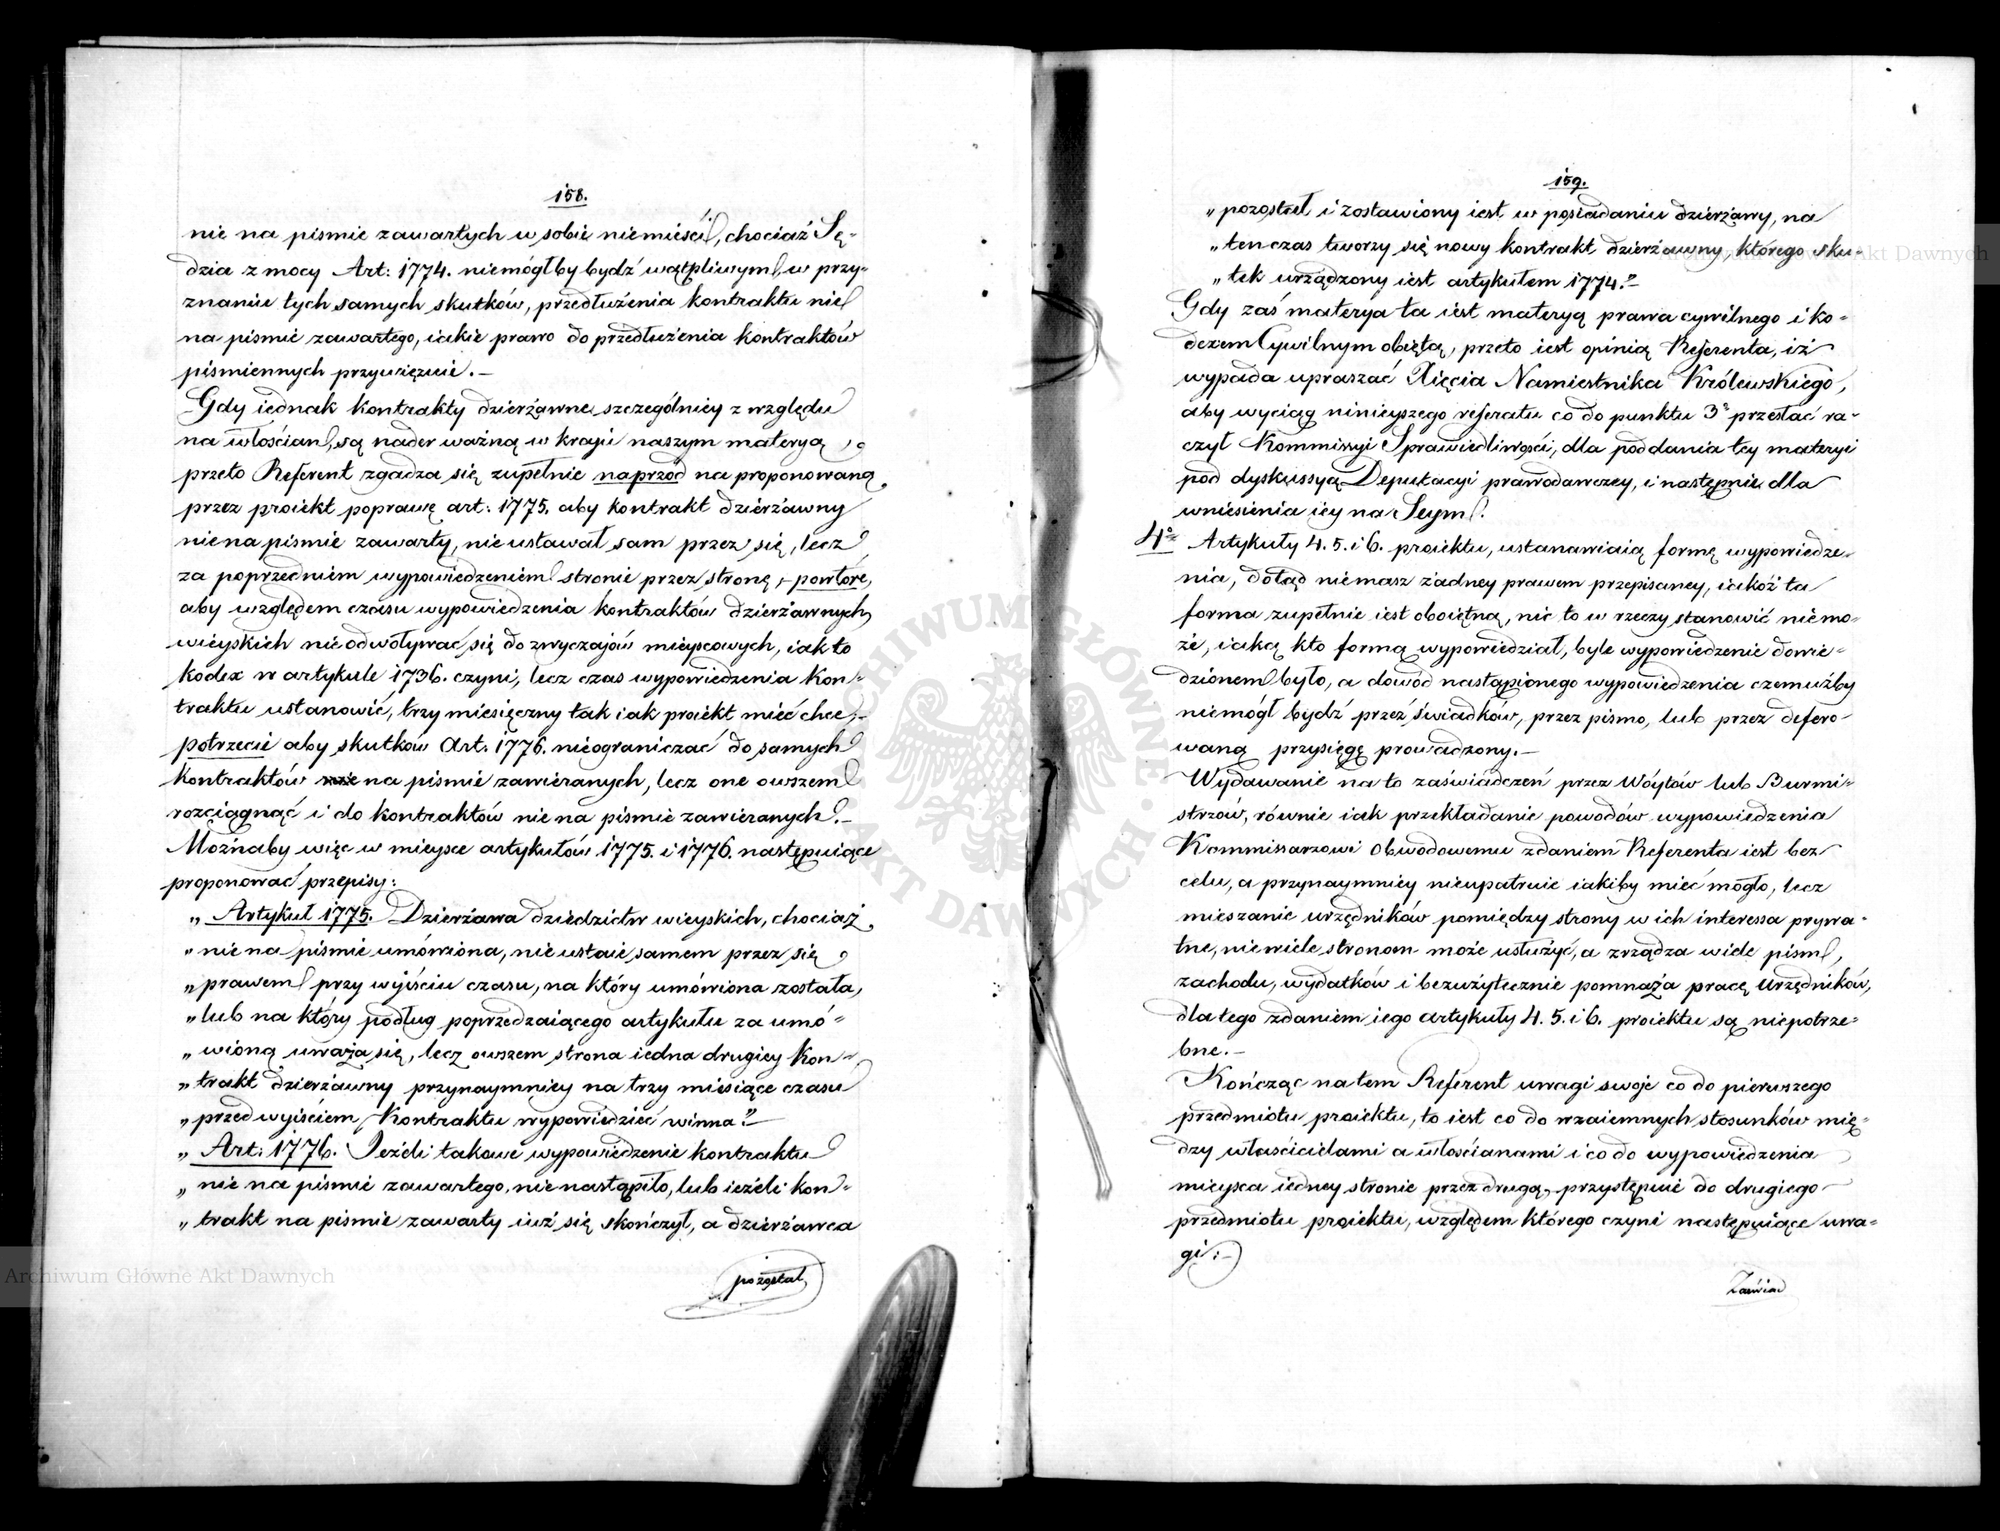 158.
nie na piśmie zawartych w sobie niemieści, chociaż Sę-
dzia z mocy Art: 1774. niemógłby bydź wątpliwym w przy-
znaniu tych samych skutków, przedłużenia kontraktu nie
na piśmie zawartego, iakie prawo do przedłużenia kontraktów
piśmiennych przywięzuie.—
Gdy iednak kontrakty dzierżawne szczególniey z względu
na włościan, są nader ważną w kraju naszym materyą,
przeto Referent zgadza się zupełnie naprzód na proponowaną
przez proiekt poprawę art: 1775. aby kontrakt dzierżawny
nie na piśmie zawarty, nie ustawał sam przez się, lecz
za poprzedniem wypowiedzeniem stronie przez stronę, powtóre,
aby względem czasu wypowiedzenia kontraktów dzierżawnych
wieyskich nie odwoływać się do zwyczajów mieyscowych, iak to
kodex w artykule 1736. czyni, lecz czas wypowiedzenia kon-
traktu ustanowić, trzymiesięczny tak iak proiekt mieć chce,—
potrzecie aby skutków Art: 1776. nieograniczać do samych
kontraktów na piśmie zawieranych, lecz one owszem
rozciągnąć i do kontraktów nie na piśmie zawieranych.—
Możnaby więc w mieysce artykułów 1775. i 1776. następuiące
proponować przepisy:
„ Artykuł 1775. Dzierżawa dziedzictw wieyskich, chociaż
„ nie na piśmie umówiona, nie ustaie samem przez się
„ prawem przy wyjściu czasu, na który umówiona została,
„ lub na który podług poprzedzaiącego artykułu za umó-
„ wioną uważa się, lecz owszem strona iedna drugiey kon-
„ trakt dzierżawny przynaymniey na trzy miesiące czasu
„ przed wyjściem Kontraktu wypowiedzieć winna.”—
„ Art: 1776. Jeżeli takowe wypowiedzenie kontraktu
„ nie na piśmie zawartego, nie nastąpiło, lub ieżeli kon-
„ trakt na piśmie zawarty iuż się skończył, a dzierżawca
pozostał
159.
„ pozostał i zostawiony iest w posiadaniu dzierżawy, na
„ ten czas tworzy się nowy kontrakt dzierżawny, którego sku-
„ tek urządzony iest artykułem 1774.”—
Gdy zaś materya ta iest materyą prawa cywilnego i ko-
dexem Cywilnym obiętą, przeto iest opinią Referenta, iż
wypada upraszać Xięcia Namiestnika Królewskiego,
aby wyciąg ninieyszego referatu co do punktu 3° przesłać ra-
czył Kommissyi Sprawiedliwości, dla poddania tey materyi
pod dyskussyą Deputacyi prawodawczey, i następnie dla
wniesienia iey na Seym.
4° Artykuły 4. 5. i 6. proiektu, ustanawiaią formę wypowiedze-
nia, dotąd niemasz żadney prawem przepisaney, iakoż ta
forma zupełnie iest oboiętną, nic to w rzeczy stanowić niemo-
że, iaką kto formą wypowiedział, byle wypowiedzenie dowie-
dzionem było, a dowód nastąpionego wypowiedzenia czemużby
niemógł bydź przez świadków, przez pismo, lub przez defero-
waną przysięgę prowadzony.—
Wydawanie na to zaświadczeń przez Wóytów lub Burmi-
strzów, równie iak przekładanie powodów wypowiedzenia
Kommissarzowi Obwodowemu zdaniem Referenta iest bez
celu, a przynaymniey nieupatruie iakiby mieć mogło, lecz
mieszanie urzędników pomiędzy strony w ich interessa prywa-
tne, niewiele stronom może usłużyć, a zrządza wiele pism,
zachodu, wydatków i bezużytecznie pomnaża pracę Urzędników,
dla tego zdaniem iego artykuły 4. 5. i 6. proiektu są niepotrze-
bne.—
Kończąc na tem Referent uwagi swoje co do pierwszego
przedmiotu proiektu, to iest co do wzaiemnych stosunków mię-
dzy właścicielami a włościanami i co do wypowiedzenia
mieysca iedney stronie przez drugą, przystępuie do drugiego
przedmiotu proiektu, względem którego czyni następuiące uwa-
gi:—
Zaświad
Archiwum Główne Akt Dawnych
Archiwum Główne Akt Dawnych
ARCHIWUM GŁÓWNE AKT DAWNYCH